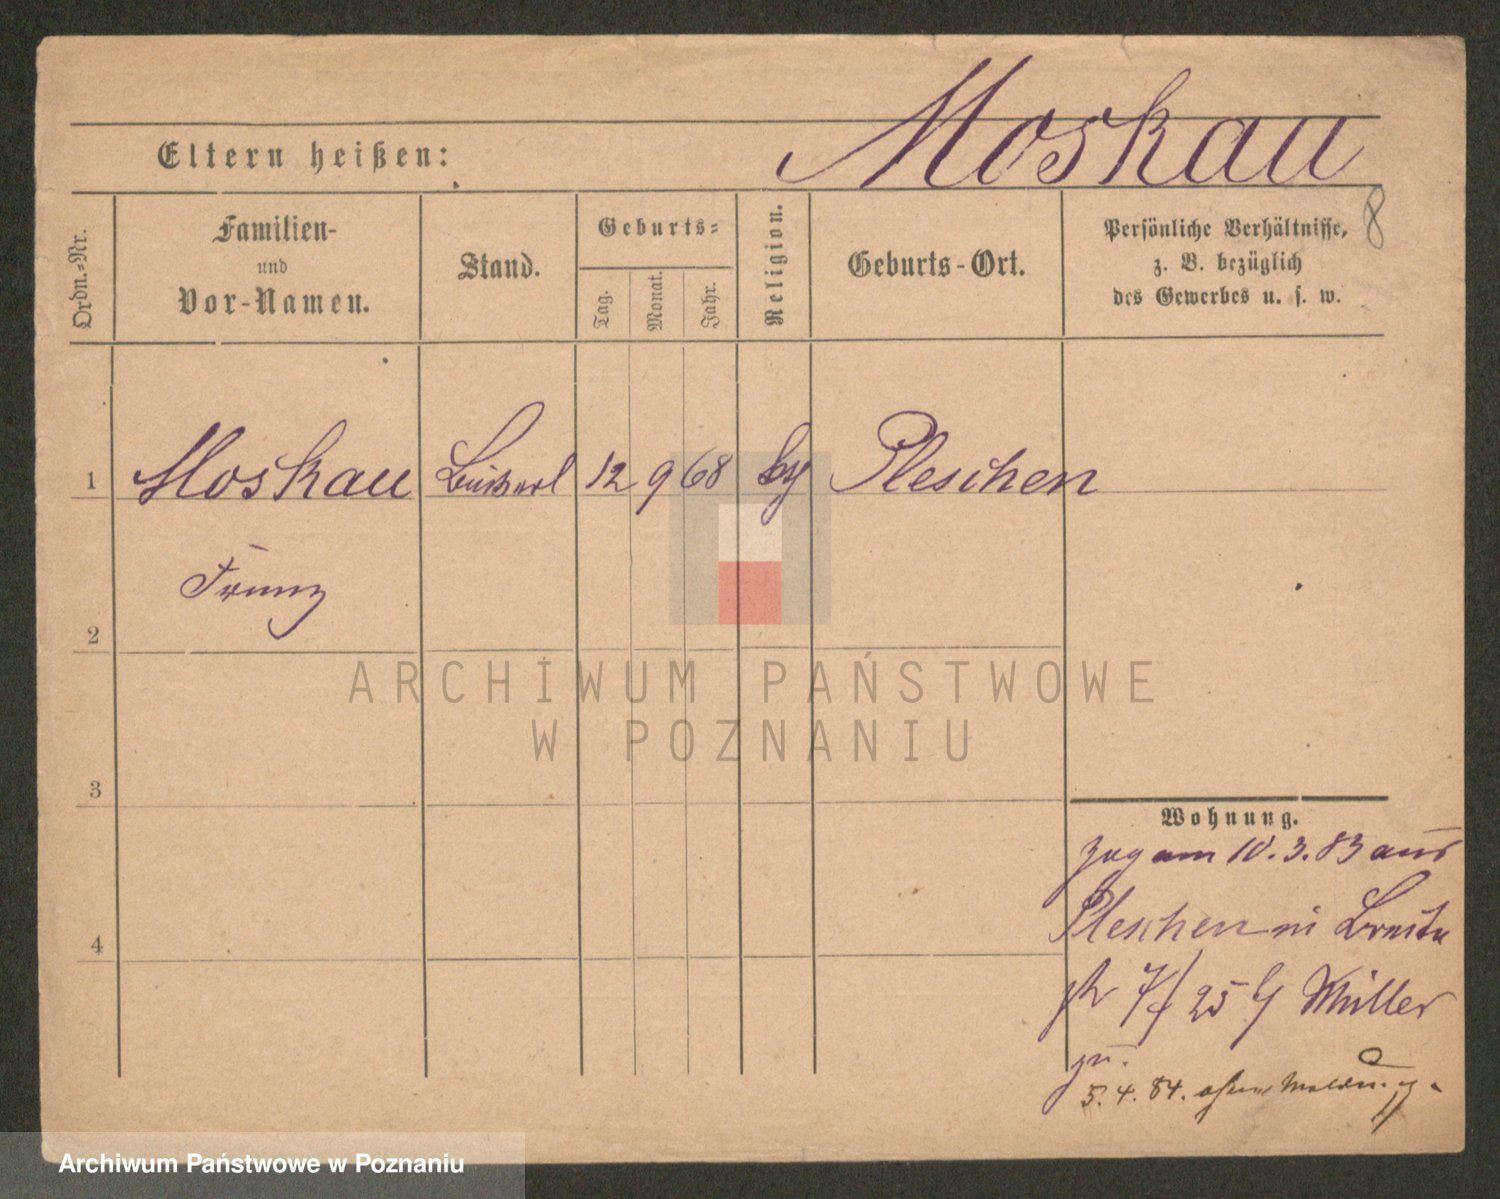 Moskau
Eltern heißen:
8
Ordn.=Nr.
Familien-
und
Vor-Namen.
Stand.
Geburts=
Tag.
Monat.
Jahr.
Religion.
Geburts-Ort.
Persönliche Verhältnisse,
z. B. bezüglich
des Gewerbes u. s. w.
1 Moskau 12 9 68 Pleschen
Franz
2
3
4
Wohnung.
Zog am 10.3.83 aus
Pleschen in Breite
str 25 Müller
zu.
5.4.84. ohne Meldung
ARCHIWUM PAŃSTWOWE
W POZNANIU
Archiwum Państwowe w Poznaniu